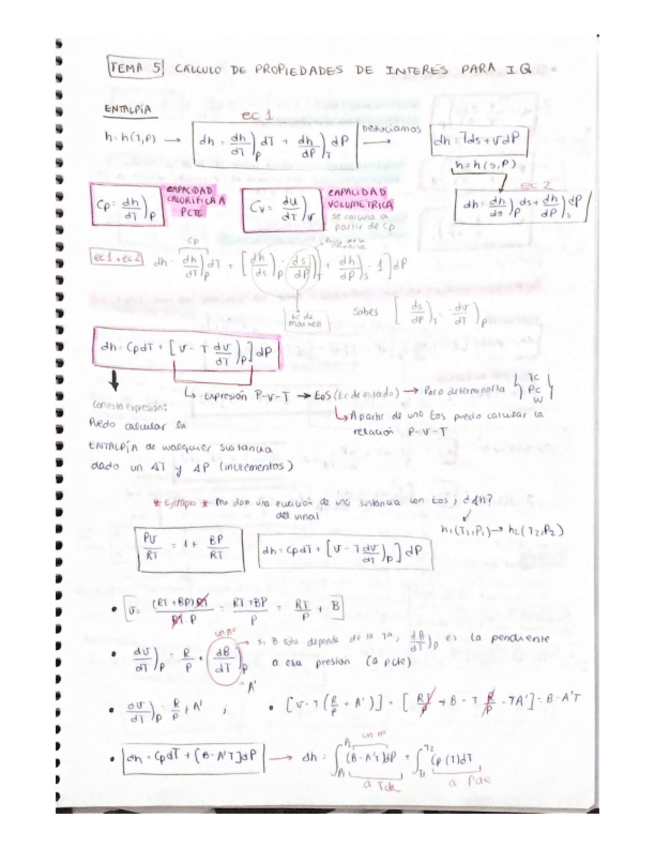 TEMA 5 CALCULO DE PROPIEDADES DE INTERÉS PARA IQ
ENTALPÍA
ec 1
h = h(T,P) → dh = dh/dT)P dT + dh/dP)T dP → deduciamos dh = Tds + vdP
h = h(s,P)
ec 2
Cp = dh/dT)P CAPACIDAD CALORIFICA A PCTE
Cv = du/dT)V CAPACIDAD VOLUMETRICA
se calcula a partir de Cp
dh = dh/ds)P ds + dh/dP)s dP
ec1 + ec2 dh = dh/dT)P dT + [dh/ds)P · ds/dP)T + dh/dP)s · 1] dP
Cp
Ec de Maxwell
Sabes [ds/dP)T = -dv/dT)P
dh = CpdT + [v - T dv/dT)P] dP
↳ Expresión P-V-T → EoS (Ec de estado) → Para determinarla { Tc Pc W }
↳ A partir de una Eos puedo calcular la relación P-V-T
Con esta expresión:
Puedo calcular la
ENTALPÍA de cualquier sustancia
dado un ΔT y ΔP (incrementos)
* Ejemplo * Me dan una ecuación de una sustancia con Eos, ¿Δh?
del virial
h1(T1,P1) → h2(T2,P2)
PV/RT = 1 + BP/RT
dh = CpdT + [v - T dv/dT)P] dP
• v = (RT + BP)RT / RT P = RT + BP / P = RT/P + B
• dv/dT)P = R/P + dB/dT)P un nº → si B sólo depende de la Tª, dB/dT)P es la pendiente
a esa presión (a pcte)
= A'
• dv/dT)P = R/P + A' ; • [v - T (R/P + A')] = [RT/P + B - T R/P - TA'] = B - A'T
• dh = CpdT + (B - A'T)dP → Δh = ∫P1 P2 (B - A'T)dP + ∫T1 T2 Cp(T)dT
un nº
a Tcte a Pcte